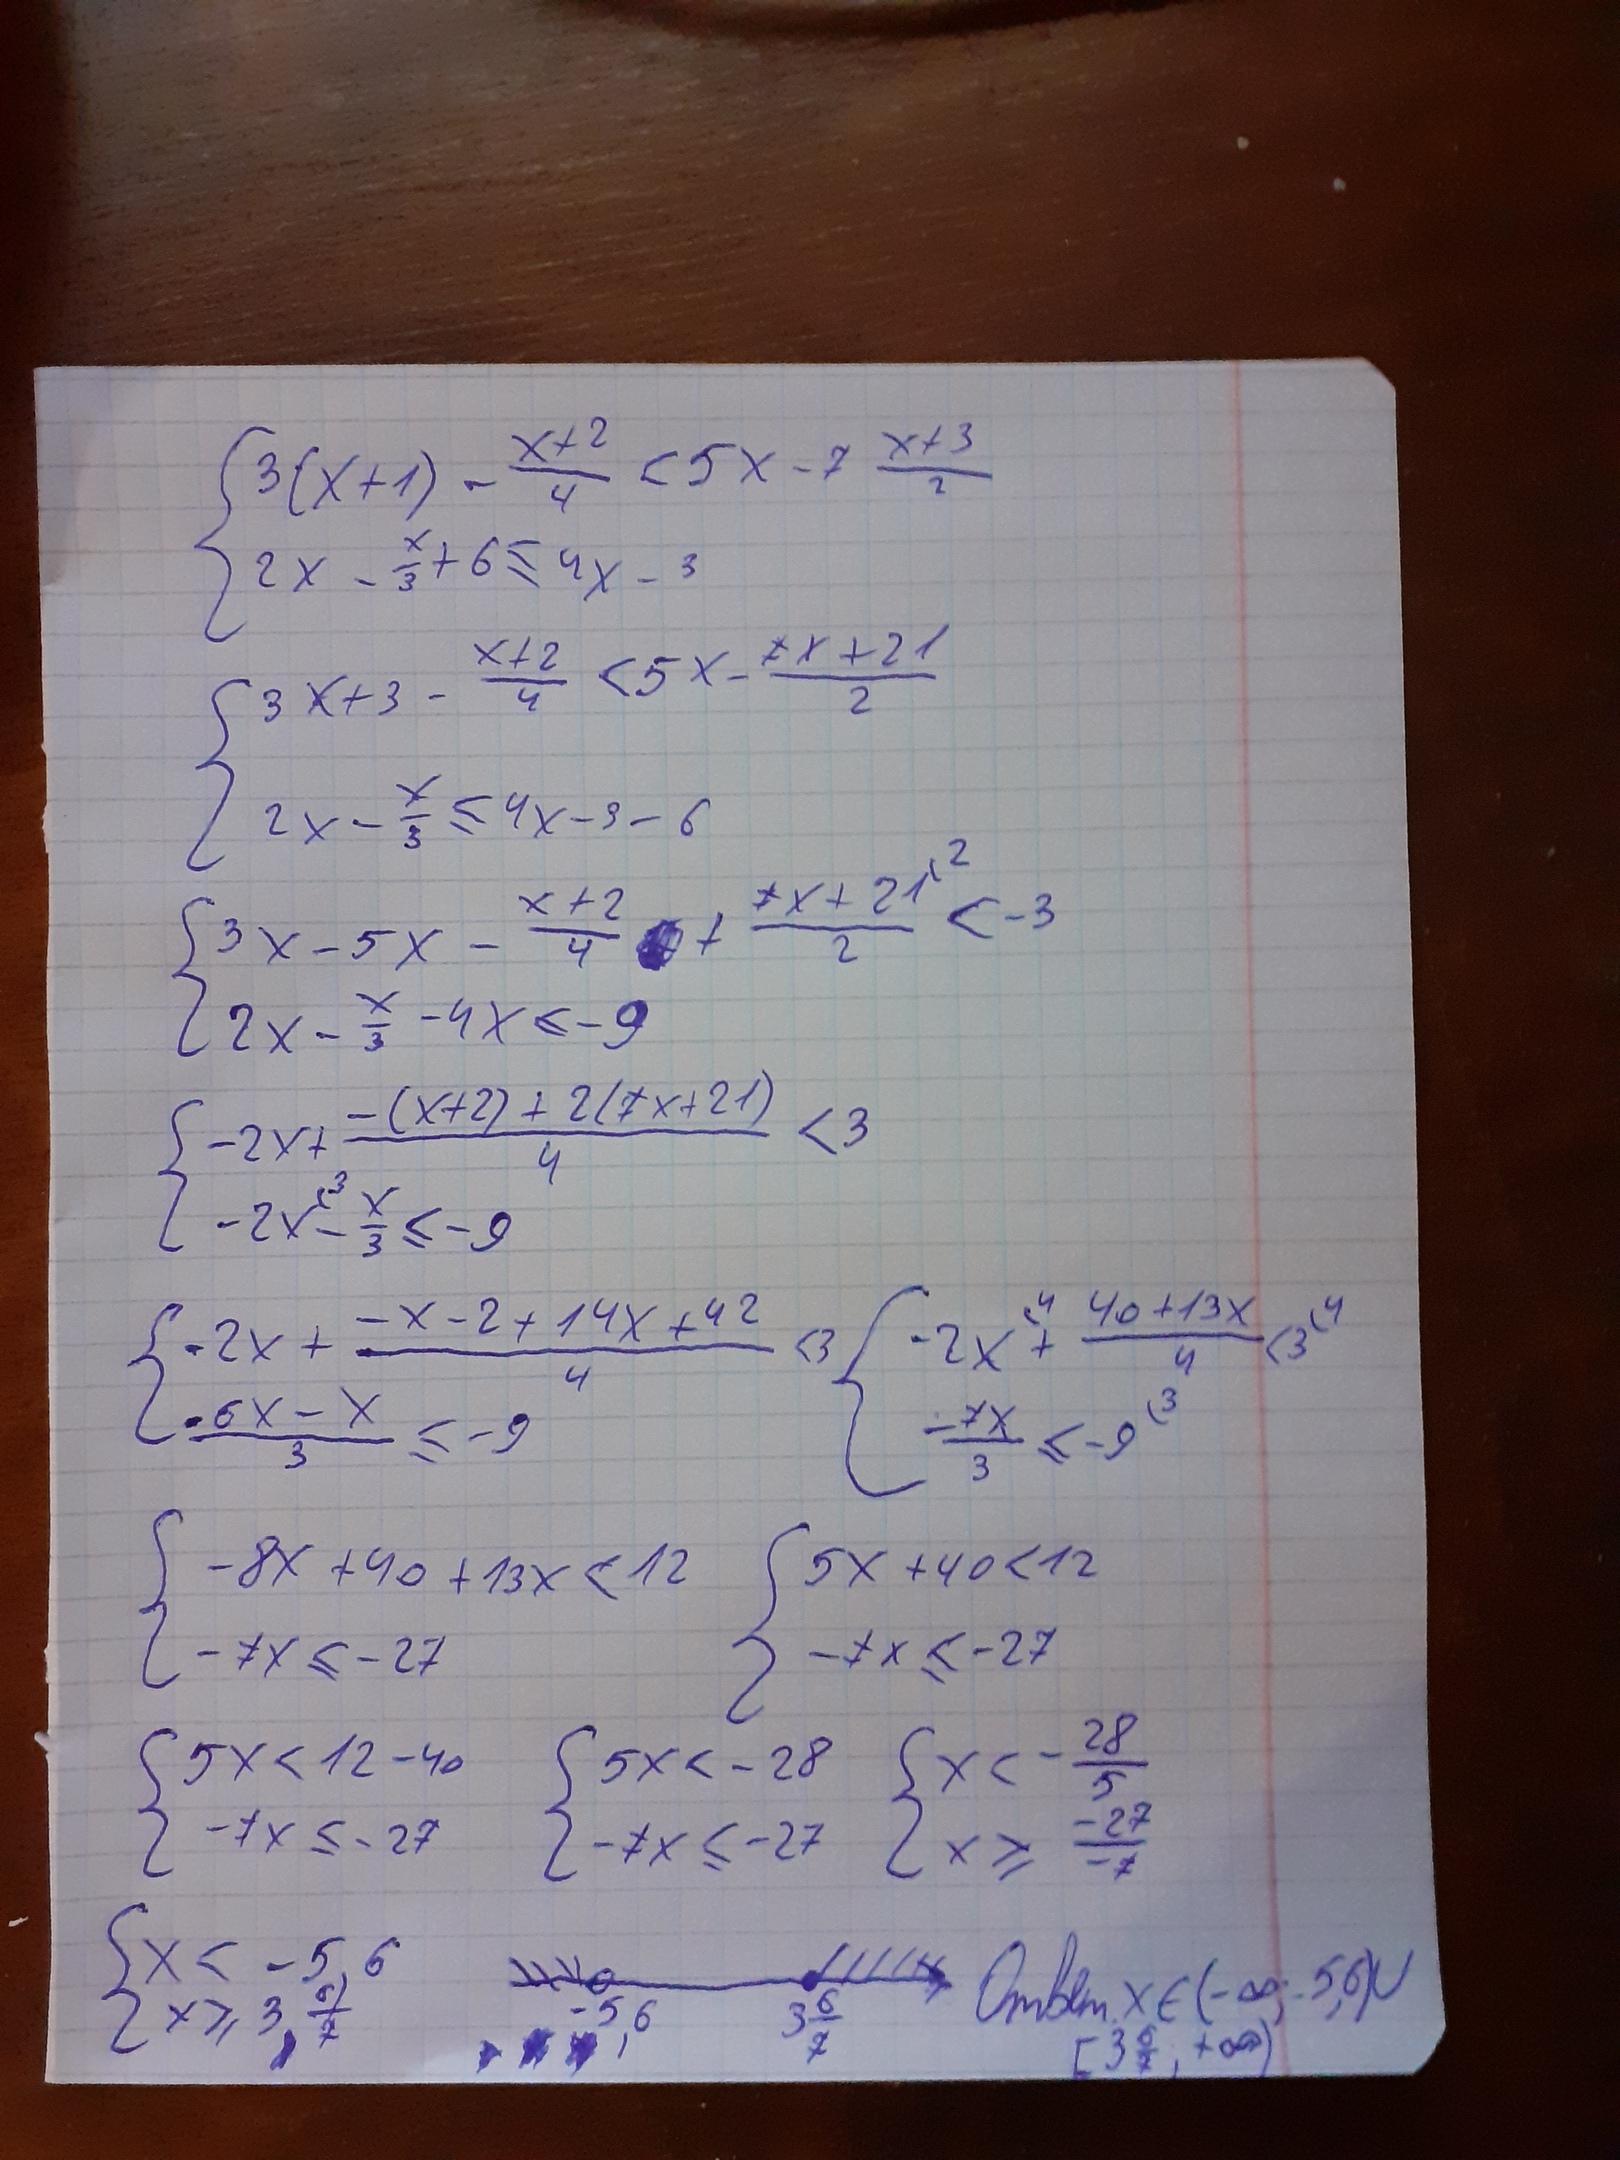 { 3(x+1) - (x+2)/4 < 5x - 7 (x+3)/2
2x - x/3 + 6 ≤ 4x - 3
{ 3x+3 - (x+2)/4 < 5x - (7x+21)/2
2x - x/3 ≤ 4x - 3 - 6
{ 3x - 5x - (x+2)/4 + (7x+21)/2 (2 < -3
2x - x/3 - 4x ≤ -9
{ -2x + (-(x+2) + 2(7x+21))/4 < 3
-2x (3 - x/3 ≤ -9
{ -2x + (-x-2+14x+42)/4 < 3 { -2x (4 + (40+13x)/4 < 3 (4
(-6x-x)/3 ≤ -9 -7x/3 ≤ -9 (3
{ -8x + 40 + 13x < 12 { 5x + 40 < 12
-7x ≤ -27 -7x ≤ -27
{ 5x < 12 - 40 { 5x < -28 { x < -28/5
-7x ≤ -27 -7x ≤ -27 x ≥ -27/-7
{ x < -5,6
x ≥ 3 6/7 -5,6 3 6/7 Ответ. x ∈ (-∞; -5,6) ∪
[3 6/7; +∞)